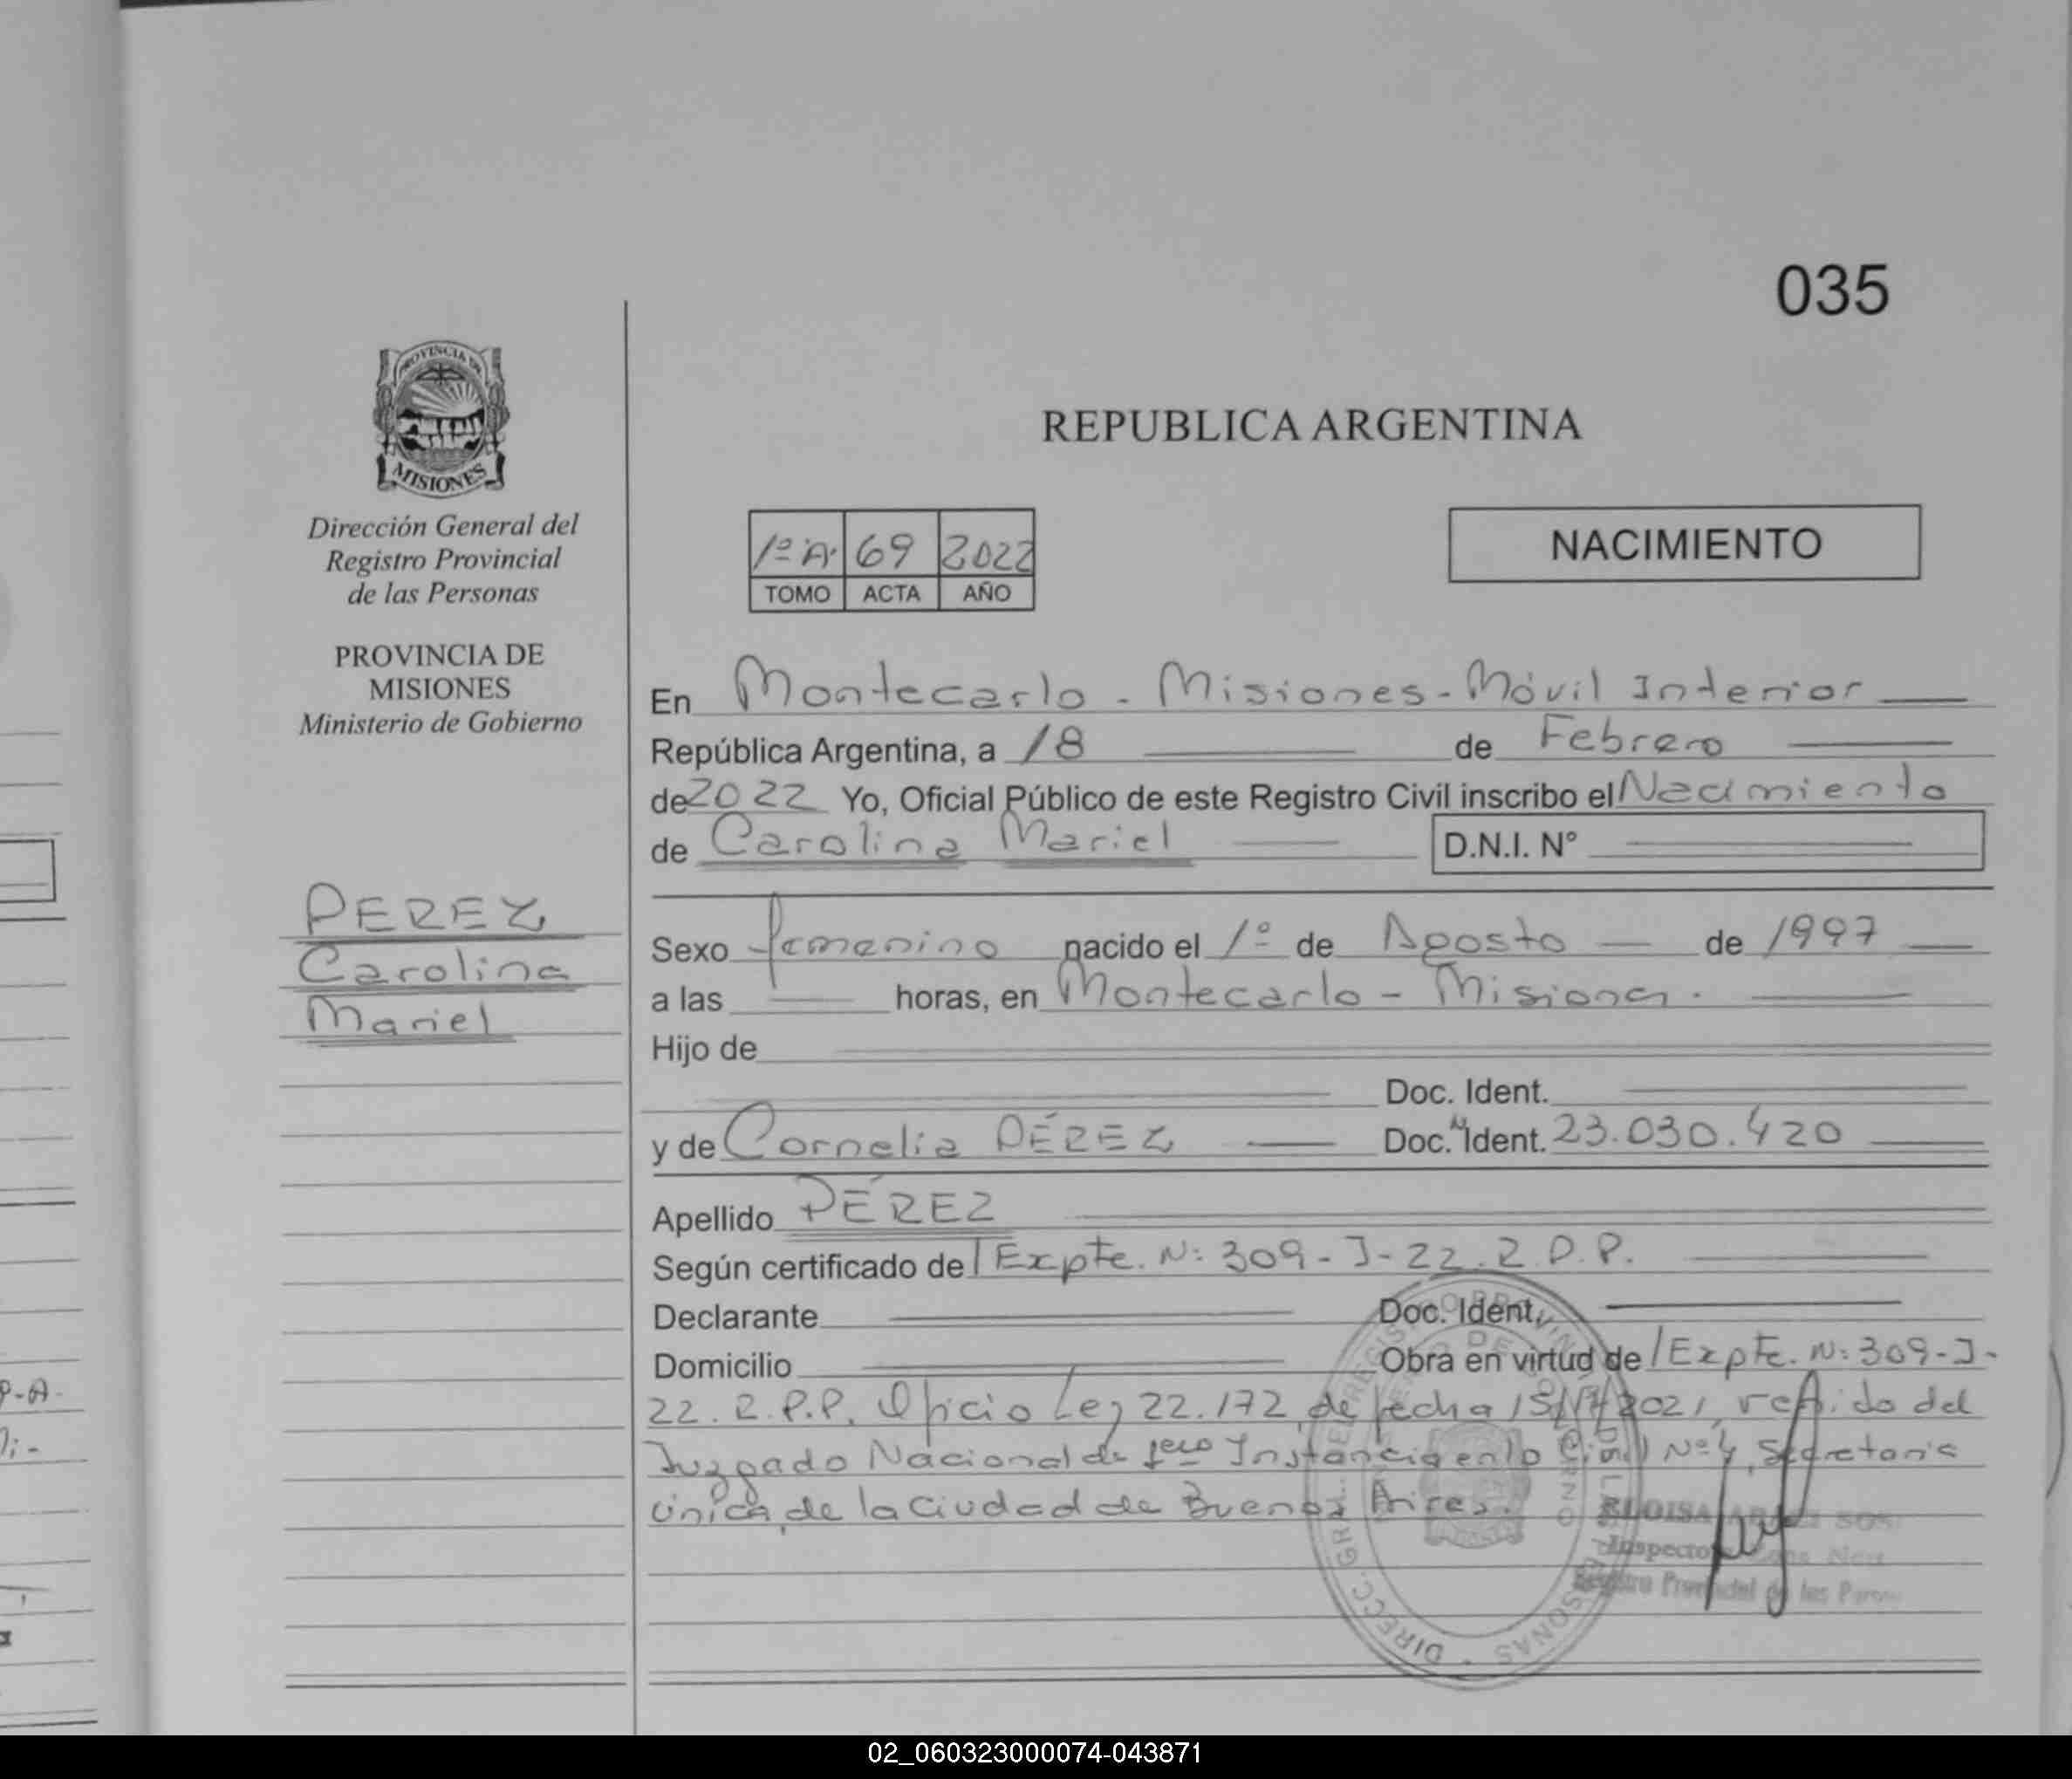 035
PROVINCIA DE
MISIONES
REPUBLICA ARGENTINA
Dirección General del
Registro Provincial
de las Personas
PROVINCIA DE
MISIONES
Ministerio de Gobierno
1º A. 69 2022
TOMO ACTA AÑO
NACIMIENTO
En Montecarlo - Misiones - Móvil Interior
República Argentina, a 18 de Febrero
de 2022 Yo, Oficial Público de este Registro Civil inscribo el Nacimiento
de Carolina Mariel D.N.I. Nº
PEREZ
Carolina
Mariel
Sexo femenino nacido el 1º de Agosto de 1997
a las horas, en Montecarlo - Misiones.
Hijo de
Doc. Ident.
y de Cornelia PÉREZ Doc. Ident. 23.030.420
Apellido PÉREZ
Según certificado de Expte. N: 309-J-22.R.P.P.
Declarante Doc. Ident.
Domicilio Obra en virtud de Expte. N: 309-J-
22.R.P.P. Oficio Ley 22.172 de fecha 2021, del
Juzgado Nacional de Instancia en lo Civil Nº4, Secretaria
única, de la Ciudad de Buenos Aires.
ELOISA
Inspector
Registro Provincial de las
P-A-
02_060323000074-043871